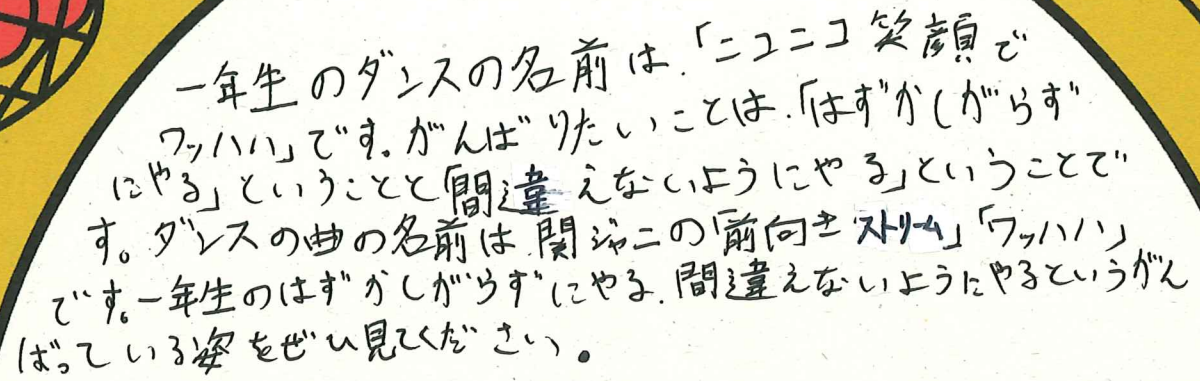 一年生のダンスの名前は、「ニコニコ笑顔で
ワッハハ」です。がんばりたいことは、「はずかしがらず
にやる」ということと「間違えないようにやる」ということで
す。ダンスの曲の名前は、関ジャニの「前向きストリーム」「ワッハハ」
です。一年生のはずかしがらずにやる、間違えないようにやるというがん
ばっている姿をぜひ見てください。